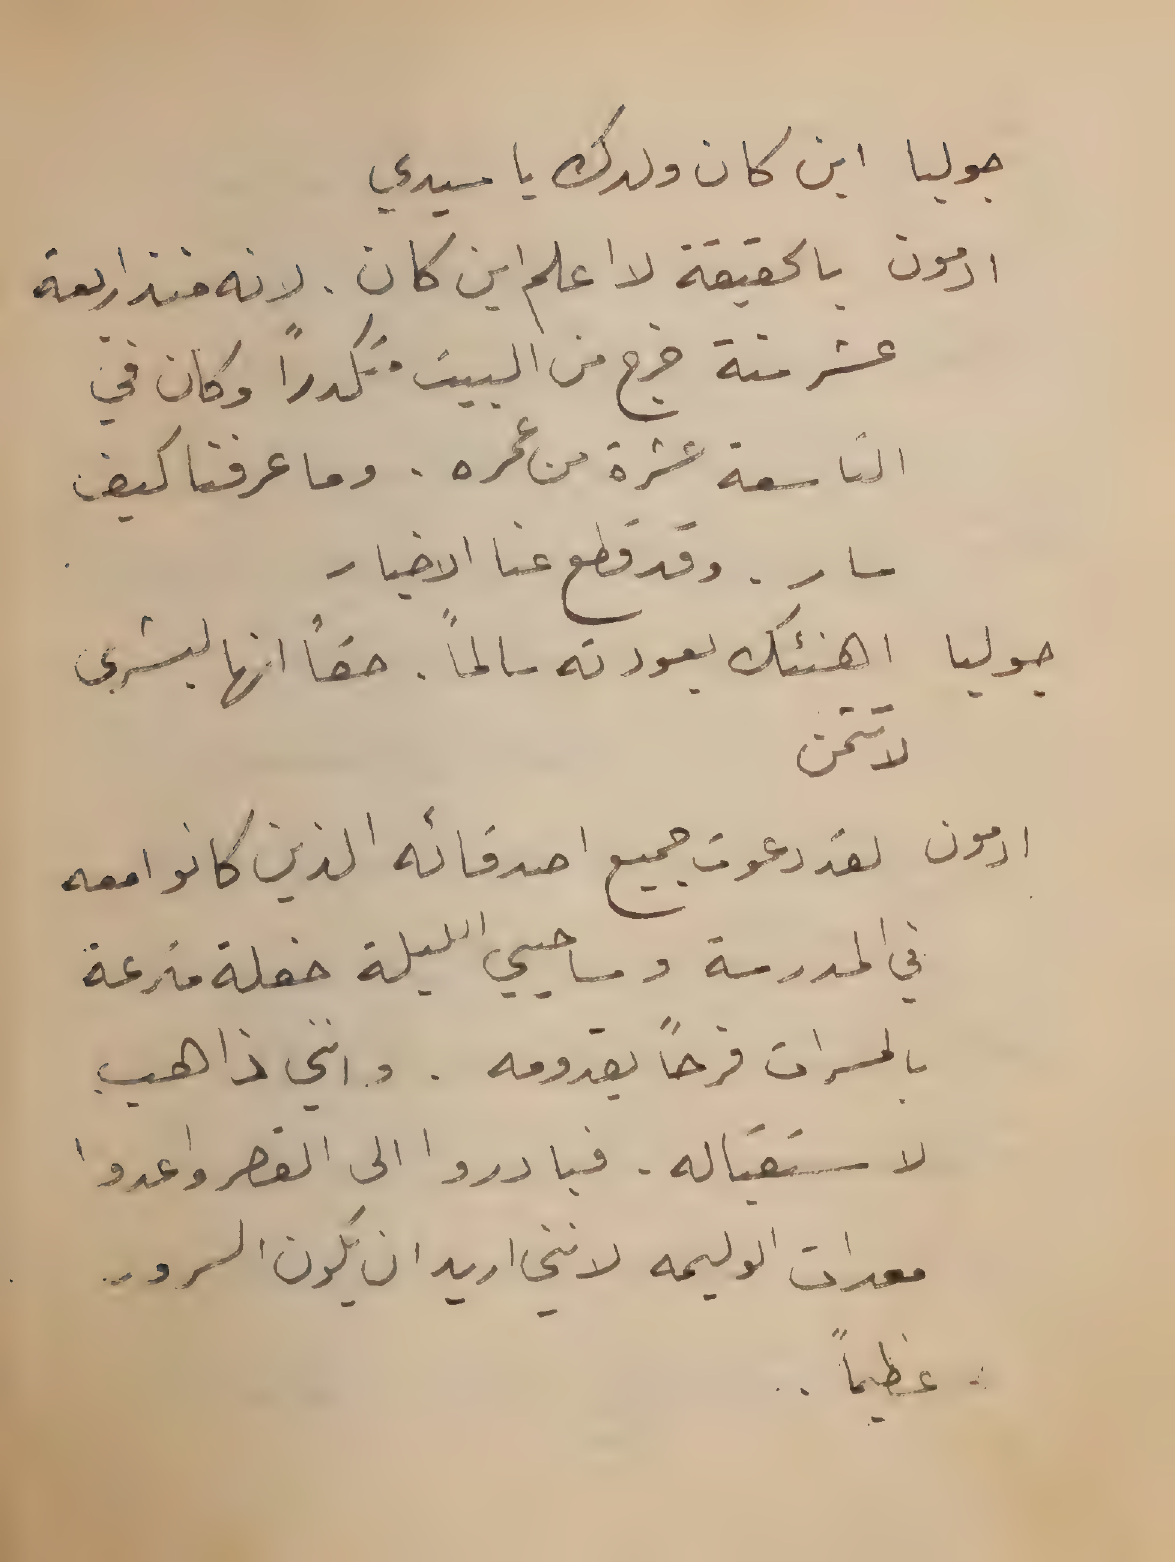 جوليا اين كان ولدك يا سيدي
ادمون بالحقيقة لا اعلم اين كان . لانه منذ اربعة
عشر سنة خرج من البيت متكدراً وكان في
التاسعة عشرة من عمره . وما عرفنا كيف
سار . وقد قطع عنا الاخبار
جوليا اهنئك بعودته سالماً . حقاً انها لبشرى
لا تثمن
ادمون لقد دعوت جميع اصدقائه الذين كانوا معه
في المدرسة وساحيي الليلة حفلة مترعة
بالمسرات فرحاً بقدومه . وانني ذاهب
لاستقباله . فبادروا الى القصر واعدوا
معدات الوليمه لانني اريد ان يكون السرور
عظيماً .